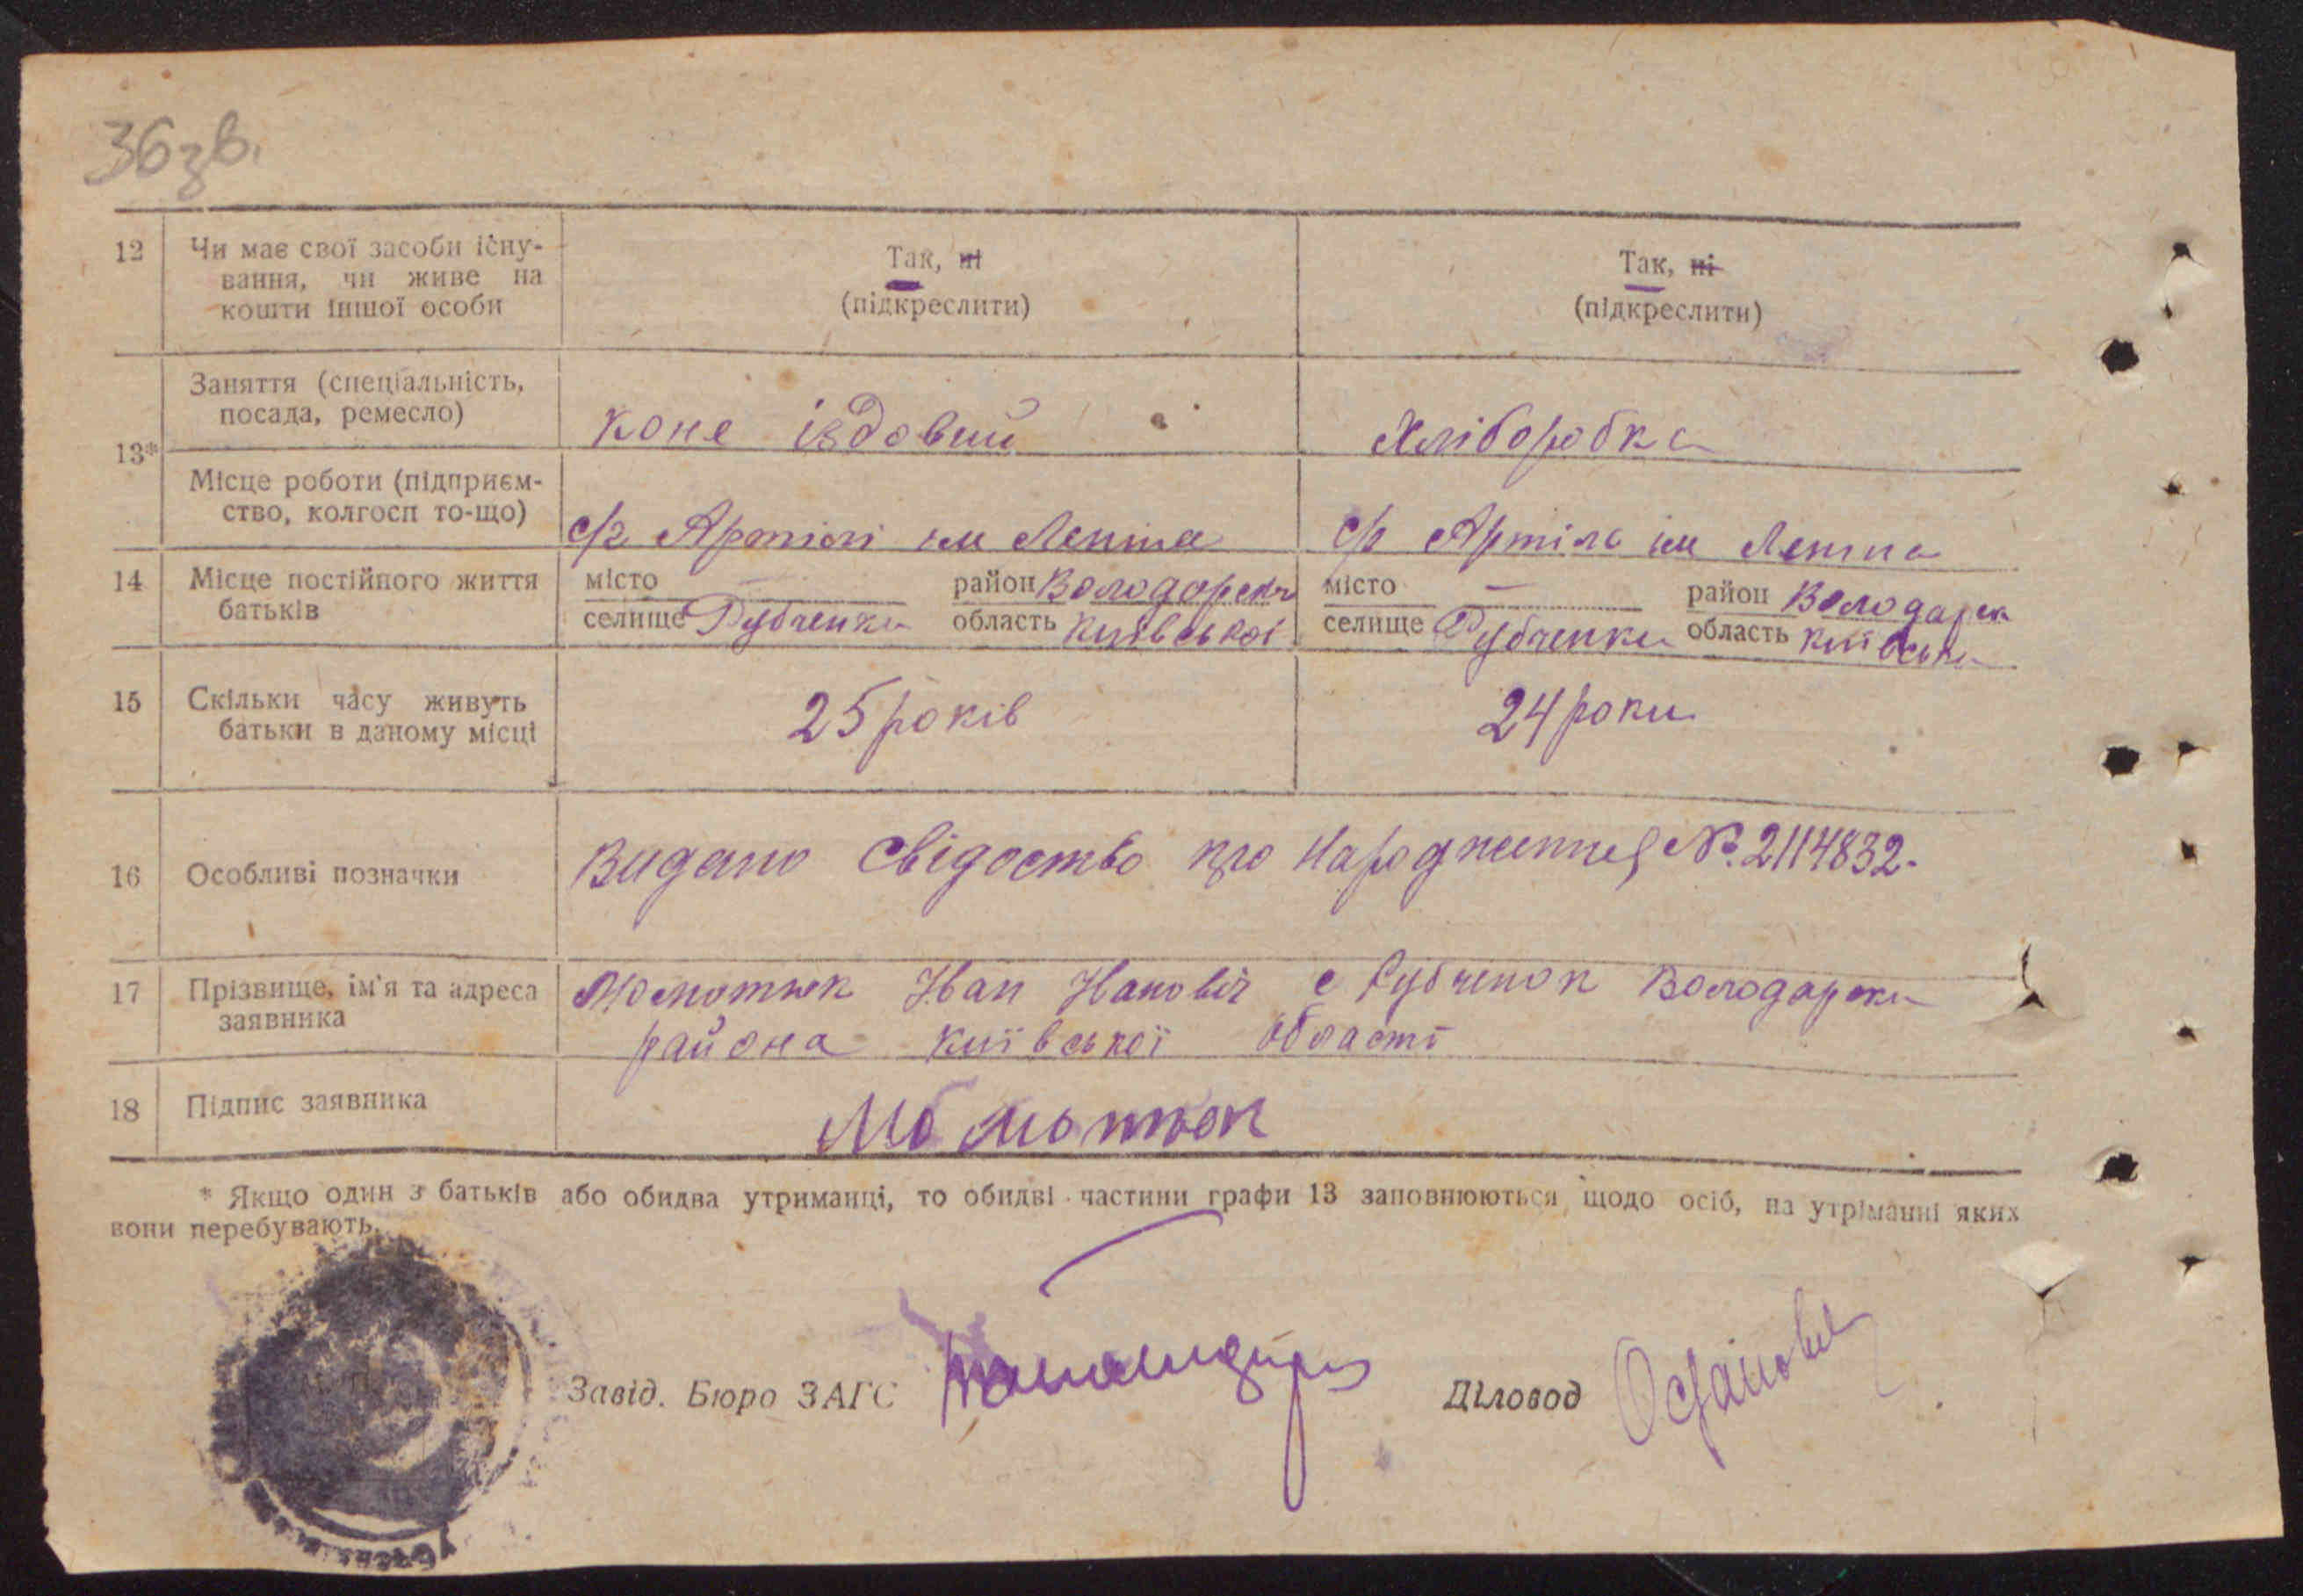 36 зв.
12 Чи має свої засоби існу- Так, ні Так, ні
вання, чи живе на (підкреслити) (підкреслити)
кошти іншої особи
13* Заняття (спеціальність,
посада, ремесло) коне їздовий Хліборобка
Місце роботи (підприєм-
ство, колгосп то-що) с/г Артілі їм Леніна с/г Артіль їм Леніна
14 Місце постійного життя місто — район Володарськ місто — район Володарськ
батьків селище Рубченки область Київської селище Рубченки область Київська
15 Скільки часу живуть 25 років 24 роки
батьки в даному місці
16 Особливі позначки Видано свідоство про Народження № 2114832.
17 Прізвище, ім'я та адреса Іван Іванович с Рубченок Володарськ
заявника района Київської області
18 Підпис заявника
* Якщо один з батьків або обидва утриманці, то обидві частини графи 13 заповнюються щодо осіб, на утріманні яких
вони перебувають.
Завід. Бюро ЗАГС Діловод